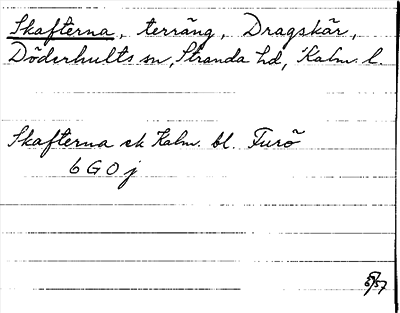 Skafterna, terräng, Dragskär,
Döderhults sn, Stranda hd, Kalm. l.
Skafterna sk Kalm. bl. Furö
6 G O j